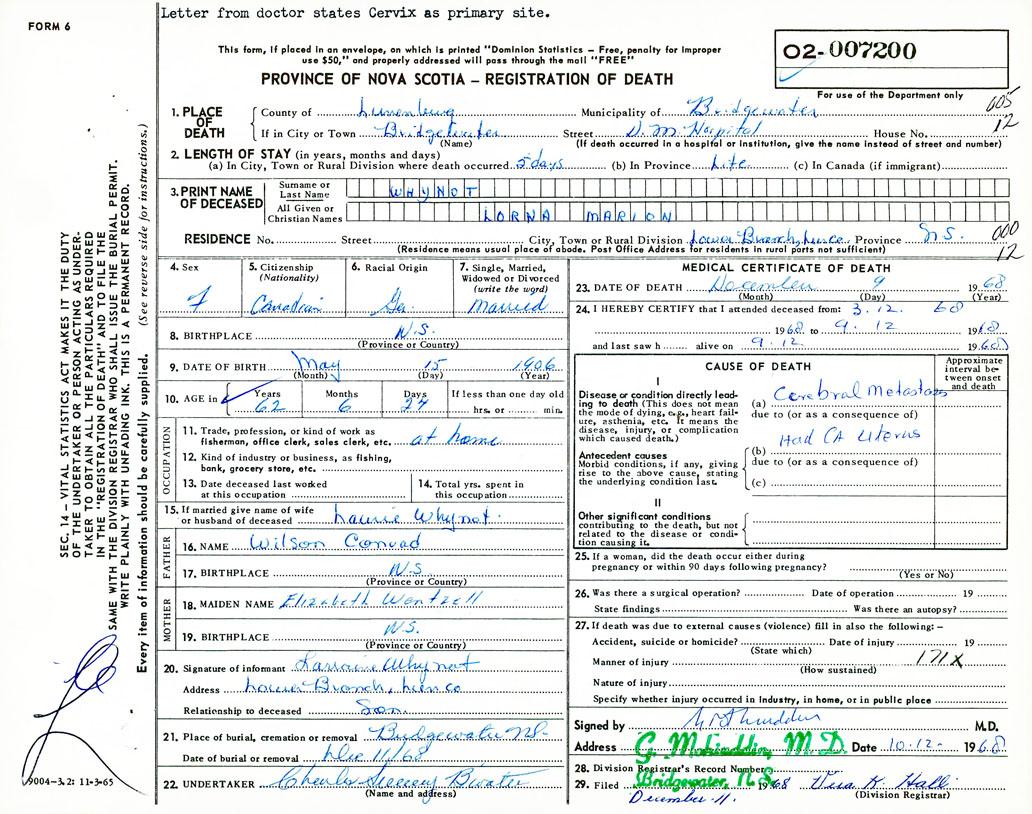 Letter from doctor states Cervix as primary site.
FORM 6
This form, if placed in an envelope, on which is printed "Dominion Statistics – Free, penalty for improper
use $50," and properly addressed will pass through the mail "FREE"
PROVINCE OF NOVA SCOTIA – REGISTRATION OF DEATH
02-007200
For use of the Department only
005
12
1. PLACE OF DEATH
County of Lunenburg Municipality of Bridgewater
If in City or Town Bridgewater Street D. M. Hospital House No.
(Name) (If death occurred in a hospital or institution, give the name instead of street and number)
2. LENGTH OF STAY (in years, months and days)
(a) In City, Town or Rural Division where death occurred 5 days (b) In Province Life (c) In Canada (if immigrant)
3. PRINT NAME OF DECEASED
Surname or Last Name WHYNOT
All Given or Christian Names LORNA MARION
RESIDENCE No. Street City, Town or Rural Division Lower Branch, Lun. Co. Province N.S.
(Residence means usual place of abode. Post Office Address for residents in rural parts not sufficient)
000
12
4. Sex
F
5. Citizenship
(Nationality)
Canadian
6. Racial Origin
Ger.
7. Single, Married,
Widowed or Divorced
(write the word)
Married
8. BIRTHPLACE N.S.
(Province or Country)
9. DATE OF BIRTH May 15 1906
(Month) (Day) (Year)
10. AGE in Years Months Days If less than one day old
62 6 24 hrs. or min.
OCCUPATION
11. Trade, profession, or kind of work as
fisherman, office clerk, sales clerk, etc. at home
12. Kind of industry or business, as fishing,
bank, grocery store, etc.
13. Date deceased last worked
at this occupation
14. Total yrs. spent in
this occupation
15. If married give name of wife
or husband of deceased Laurie Whynot
FATHER
16. NAME Wilson Conrad
17. BIRTHPLACE N.S.
(Province or Country)
MOTHER
18. MAIDEN NAME Elizabeth Wentzell
19. BIRTHPLACE N.S.
(Province or Country)
20. Signature of informant Whynot
Address Lower Branch, Lun Co
Relationship to deceased Son
21. Place of burial, cremation or removal Bridgewater NS.
Date of burial or removal Dec 11/68
22. UNDERTAKER B'water
(Name and address)
MEDICAL CERTIFICATE OF DEATH
23. DATE OF DEATH December 9 1968
(Month) (Day) (Year)
24. I HEREBY CERTIFY that I attended deceased from: 3. 12. 68
1968 to 9. 12 1968
and last saw h alive on 9. 12 1968
CAUSE OF DEATH
Approximate
interval be-
tween onset
and death
I
Disease or condition directly lead-
ing to death (This does not mean
the mode of dying, e.g., heart fail-
ure, asthenia, etc. It means the
disease, injury, or complication
which caused death.)
(a) Cerebral Metastases
due to (or as a consequence of)
Had CA Uterus
Antecedent causes
Morbid conditions, if any, giving
rise to the above cause, stating
the underlying condition last.
(b)
due to (or as a consequence of)
(c)
II
Other significant conditions
contributing to the death, but not
related to the disease or condi-
tion causing it.
25. If a woman, did the death occur either during
pregnancy or within 90 days following pregnancy?
(Yes or No)
26. Was there a surgical operation? Date of operation 19
State findings Was there an autopsy?
27. If death was due to external causes (violence) fill in also the following: –
Accident, suicide or homicide? Date of injury 19
(State which)
Manner of injury 171X
(How sustained)
Nature of injury
Specify whether injury occurred in industry, in home, or in public place
Signed by M.D.
Address G. M. D. Date 10.12- 1968
Bridgewater, N.S.
28. Division Registrar's Record Number
29. Filed December 11. 1968 Vera K. Hall
(Division Registrar)
SEC. 14 – VITAL STATISTICS ACT MAKES IT THE DUTY
OF THE UNDERTAKER OR PERSON ACTING AS UNDER-
TAKER TO OBTAIN ALL THE PARTICULARS REQUIRED
IN THE "REGISTRATION OF DEATH" AND TO FILE THE
SAME WITH THE DIVISION REGISTRAR WHO SHALL ISSUE THE BURIAL PERMIT.
WRITE PLAINLY WITH UNFADING INK. THIS IS A PERMANENT RECORD.
Every item of information should be carefully supplied. (See reverse side for instructions.)
9004-3.2: 11-3-65